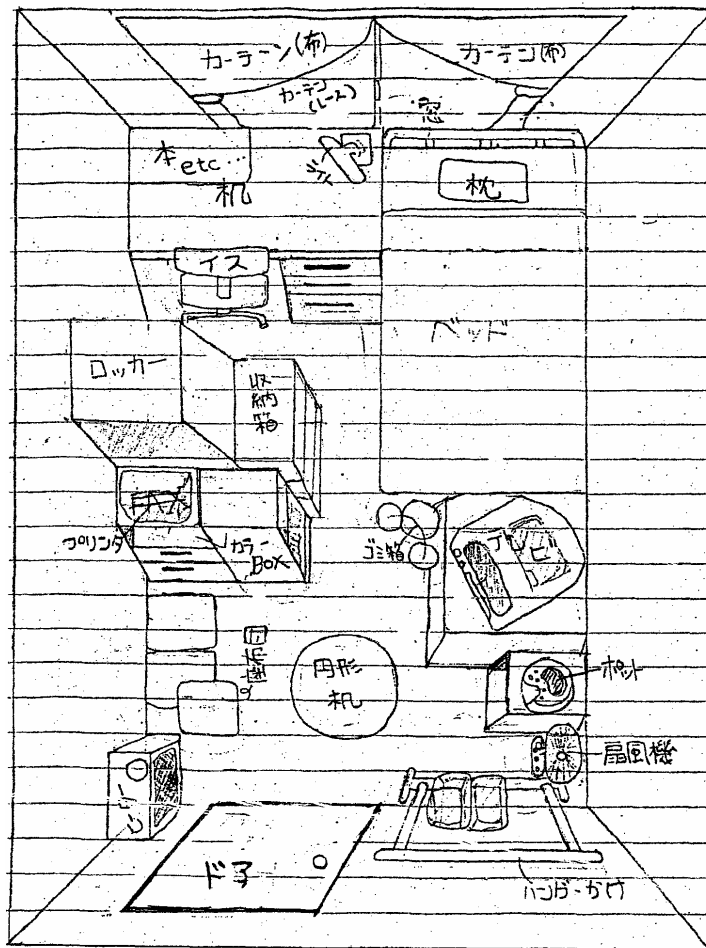 カーテン(布)
カーテン(布)
カーテン
(レース)
窓
本etc…
机
ライト
枕
イス
ベッド
ロッカー
収納箱
プリンタ
カラー
BOX
ゴミ箱
テレビ
円形
机
ポット
扇風機
ドア
ハンガーかけ